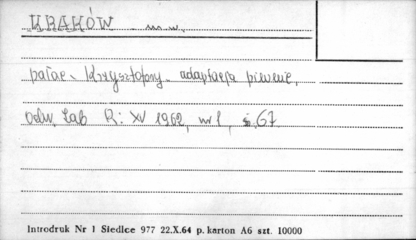 KRAKÓW m.w.
pałac Krzysztofory. adaptacja piwnic,
Odw. Zab R: XV 1962, nr 1, s. 67
Introdruk Nr 1 Siedlce 977 22.X.64 p. karton A6 szt. 10000